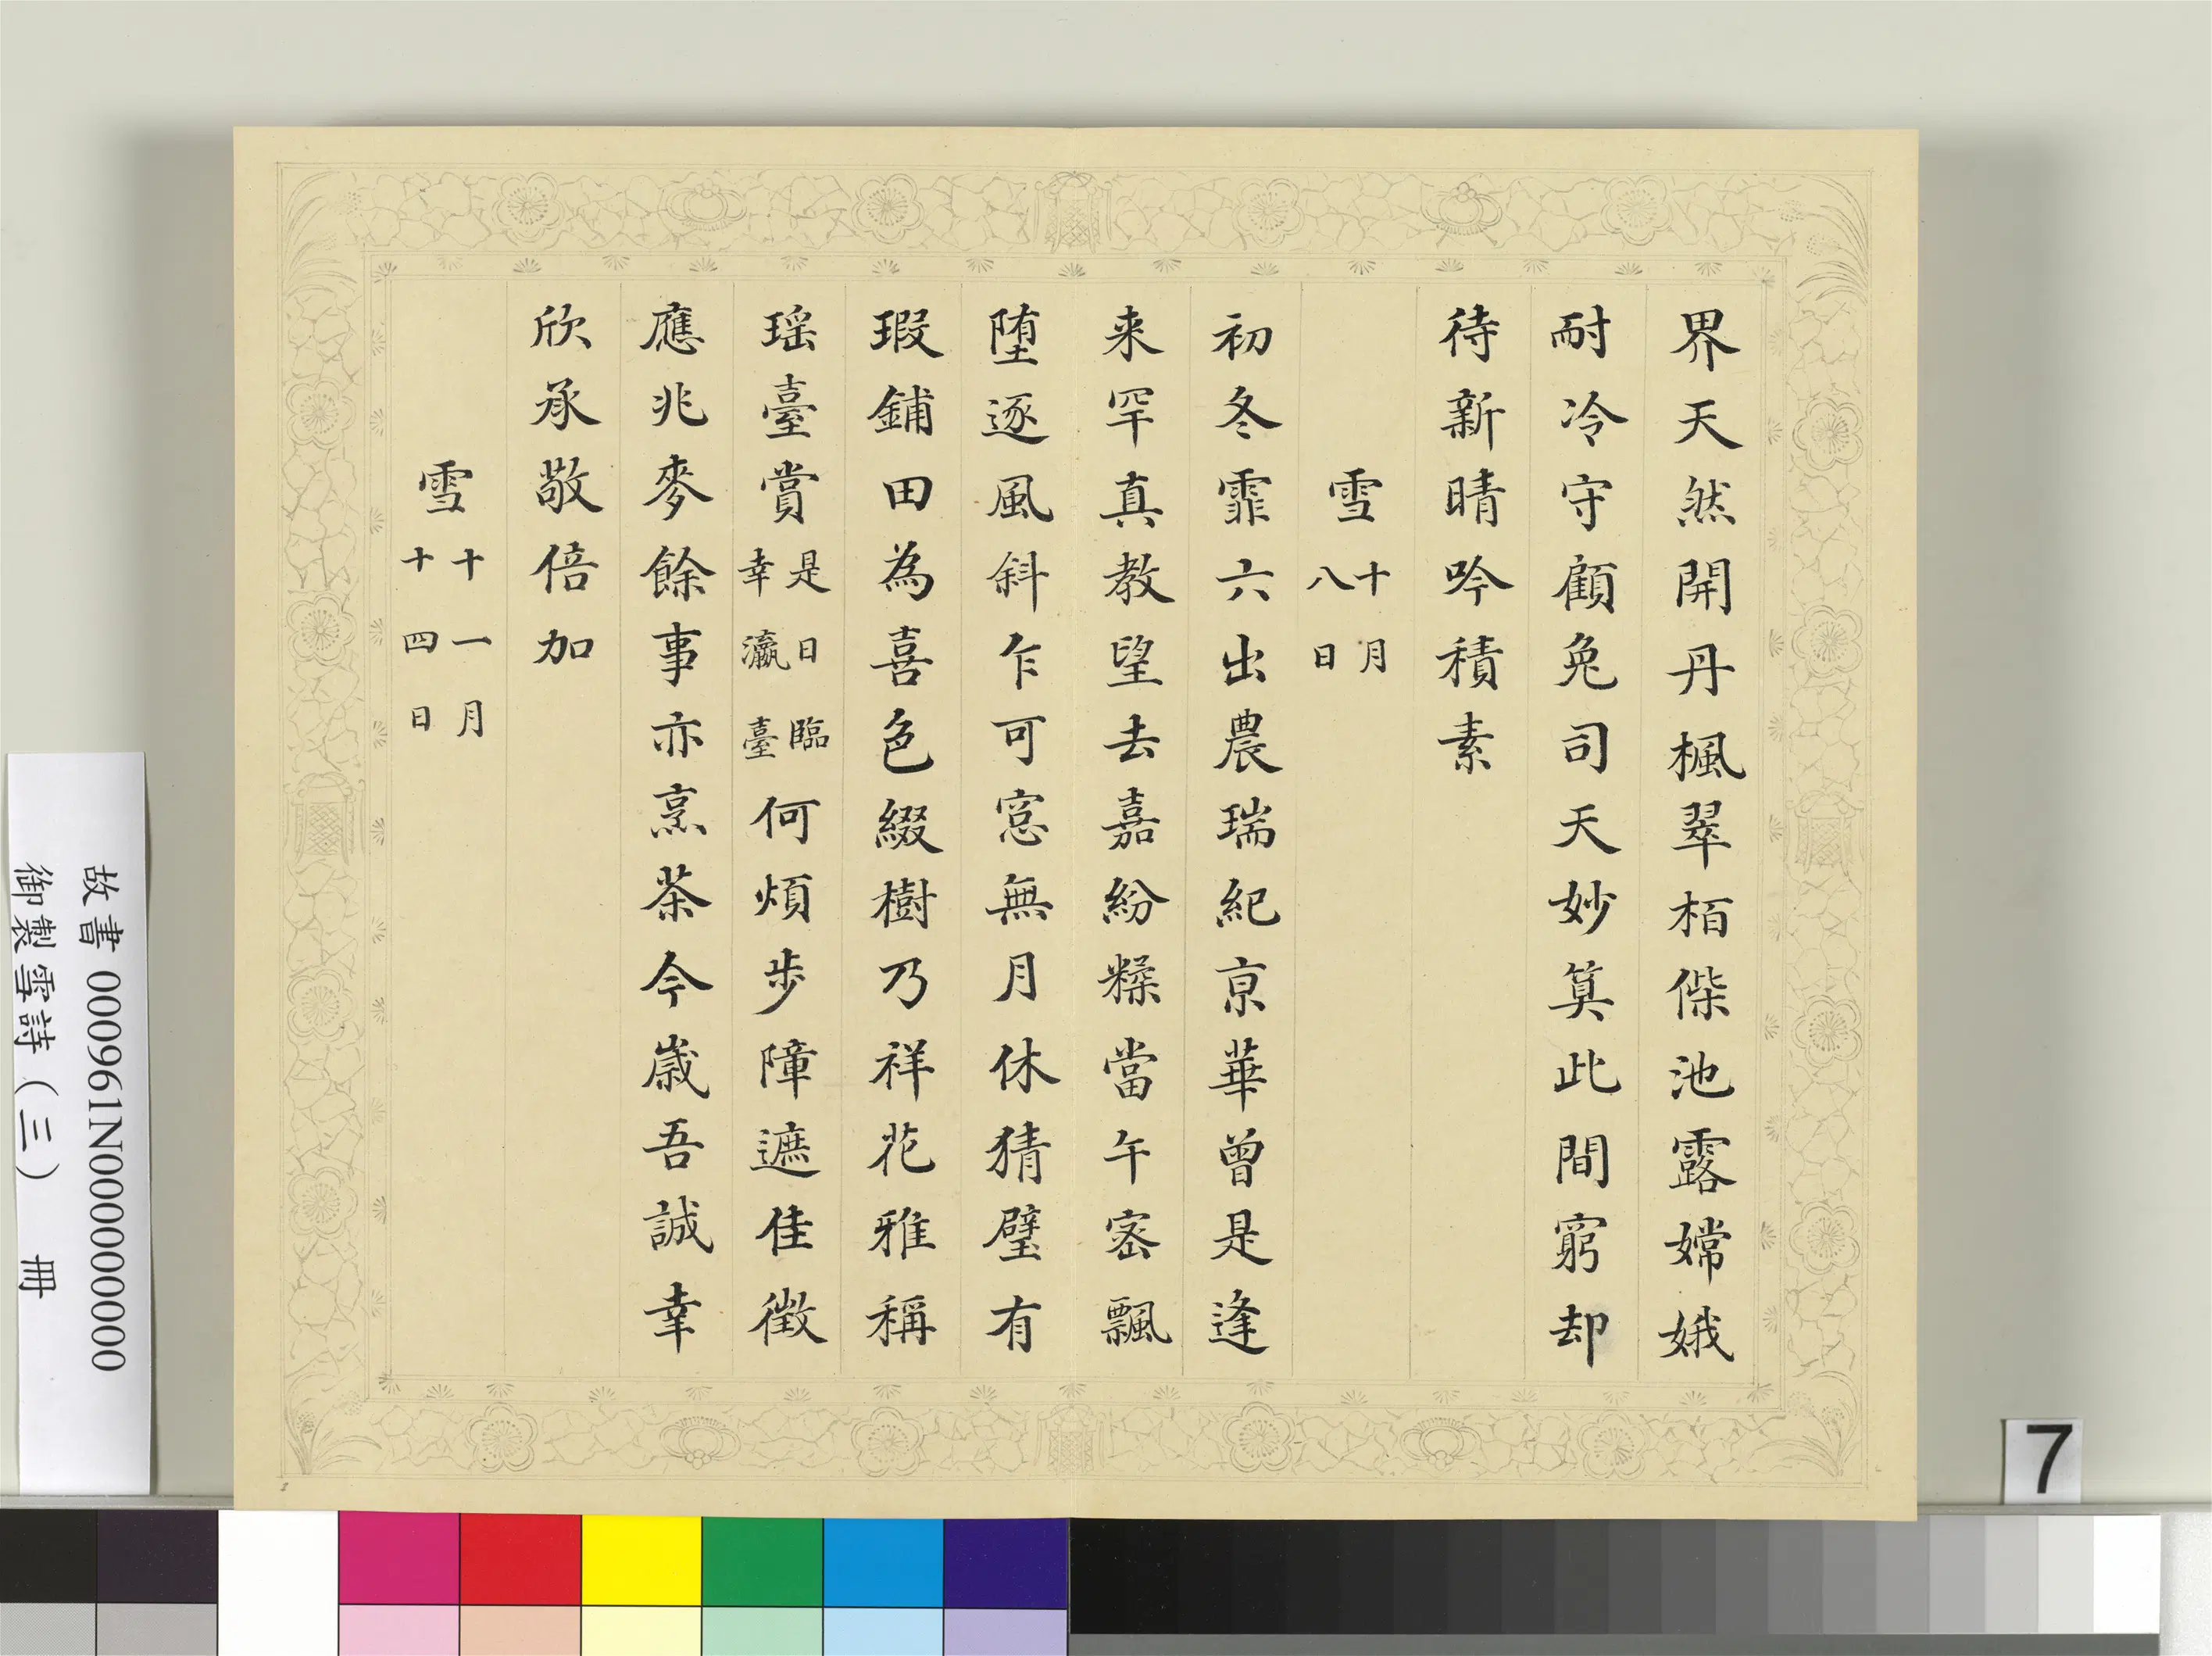 界天然開丹楓翠栢傑池露嫦娥
耐冷守顧兔司天妙筭此間窮却
待新晴吟積素
雪十月八日
初冬霏六出農瑞紀京華曾是逢
来罕真教望去嘉紛糅當午宻飄
堕逐風斜乍可窓無月休猜璧有
瑕鋪田為喜色綴樹乃祥花雅稱
瑶臺賞是日臨幸瀛臺何煩步障遮佳徴
應兆麥餘事亦烹茶今嵗吾誠幸
欣承敬倍加
雪十一月十四日
故書 000961N000000000
御製雪詩（三） 冊
7